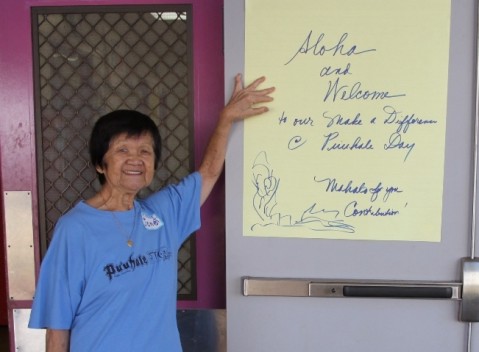 Aloha
and
Welcome
to our Make a Difference
@ Puuhale Day
'Mahalo for you
Contribution'
Puuhale